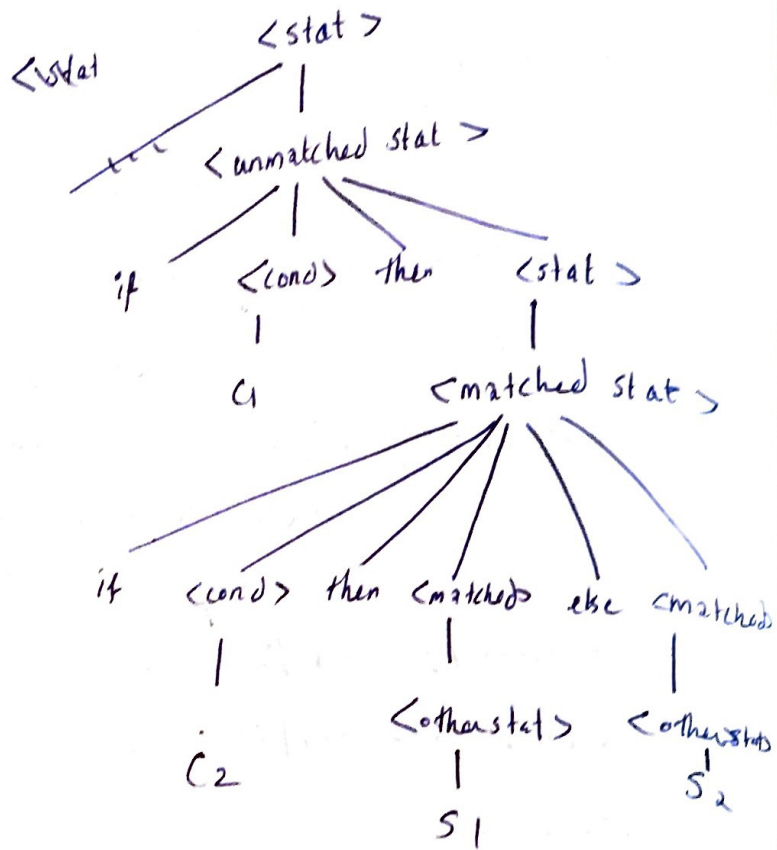 <stat>
<stat
<unmatched stat>
if <cond> then <stat>
C1
<matched stat>
if <cond> then <matched> else <matched>
<otherstat> <otherstat>
C2
S2
S1